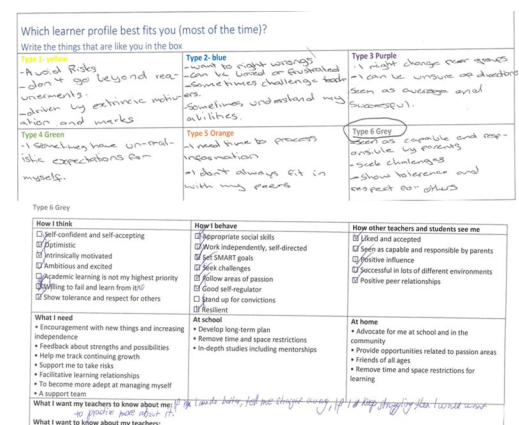 Which learner profile best fits you (most of the time)?
Write the things that are like you in the box
Type 1- yellow
-Avoid Risks
-don't go beyond req-
uirements.
-driven by extrinsic motiv-
ation and marks
Type 2- blue
-want to right wrongs
-can be bored or frustrated
-sometimes challenge teach-
ers.
-Sometimes understand my
abilities.
Type 3 Purple
-I might change peer groups
-I can be unsure of directions
seen as average and
successful.
Type 4 Green
-I sometimes have un-real-
istic expectations for
myself.
Type 5 Orange
-I need time to process
information
-I don't always fit in
with my peers
Type 6 Grey
-seen as capable and resp-
onsible by parents
-seek challenges
-show tolerence and
respect for others
Type 6 Grey
How I think
Self-confident and self-accepting
Optimistic
Intrinsically motivated
Ambitious and excited
Academic learning is not my highest priority
Willing to fail and learn from it
Show tolerance and respect for others
How I behave
Appropriate social skills
Work independently, self-directed
Set SMART goals
Seek challenges
Follow areas of passion
Good self-regulator
Stand up for convictions
Resilient
How other teachers and students see me
Liked and accepted
Seen as capable and responsible by parents
Positive influence
Successful in lots of different environments
Positive peer relationships
What I need
• Encouragement with new things and increasing
independence
• Feedback about strengths and possibilities
• Help me track continuing growth
• Support me to take risks
• Facilitative learning relationships
• To become more adept at managing myself
• A support team
At school
• Develop long-term plan
• Remove time and space restrictions
• In-depth studies including mentorships
At home
• Advocate for me at school and in the
community
• Provide opportunities related to passion areas
• Friends of all ages
• Remove time and space restrictions for
learning
What I want my teachers to know about me: If I can do better, tell me straight away, If I keep struggling then I would want
to practice more about it.
What I want to know about my teachers: